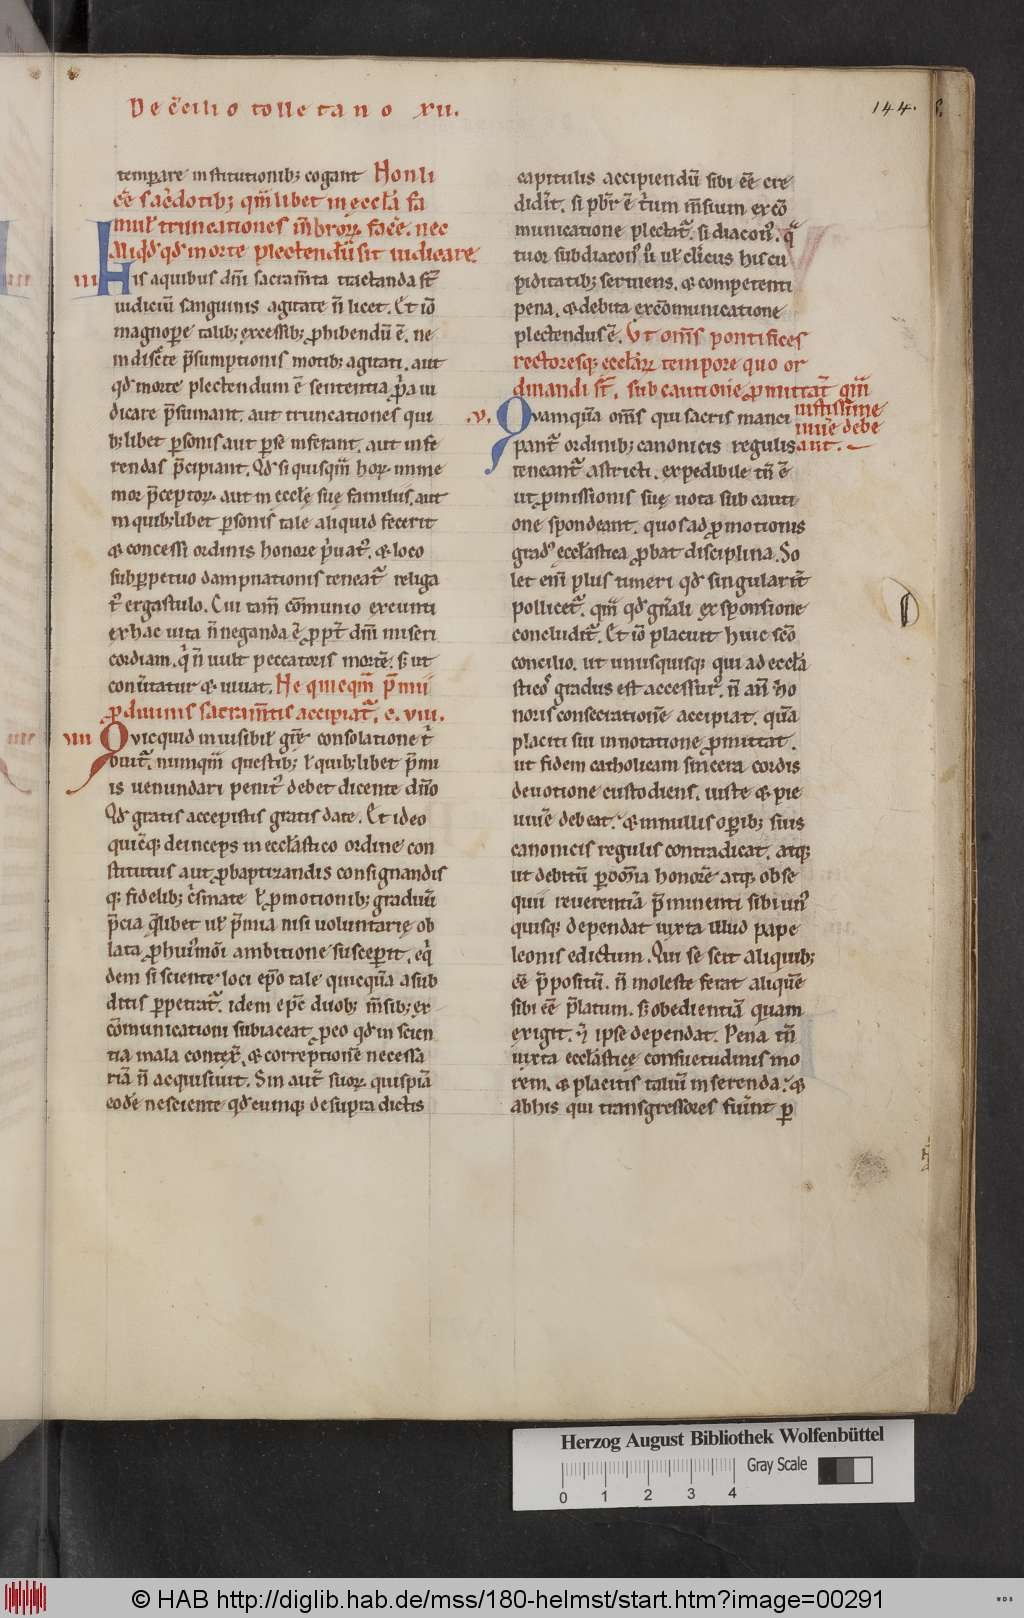 De c̄cilio tolletano xii.
144.
temꝑare institutionib; cogant Non li
cēs sac̄dotib; qm̄libet in eccl̄a fa
mul̄ truncationes m̄broꝝ facē. nec
aliqd̄ qd̄ morte plectendū sit iudicare.
iii His a quibus dn̄i sacram̄ta tractanda st̄
iudiciū sanguinis agitare n̄ licet. Et iō
magnoꝑe talib; excessib; ꝓhibendū ē. ne
indisc̄te p̄sumptionis motib; agitati. aut
qd̄ morte plectendum ē sententia ꝓp̄a iu
dicare p̄sumant. aut truncationes qui
b;libet ꝑsonis aut ꝑ se inferant. aut infe
rendas p̄cipiant. Qd̄ si quisqm̄ hoꝝ inme
mor p̄ceptoꝝ. aut in eccl̄e suę familiis. aut
in quib;libet ꝑsonis tale aliquid fecerit
& concessi ordinis honore p̄uat᷒. & loco
sub ꝑpetuo dampnationis teneat᷒ religa
t᷒ ergastulo. Cui tam̄ cōmunio exeunti
ex hac uita n̄ neganda ē ꝓpt̄ dn̄i miseri
cordiam. q̇ n̄ uult peccatoris mortē. s; ut
conūtatur & uiuat. Ne quicqm̄ p̄mii
ꝓ diuinis sacram̄tis accipiat᷒. c. viii.
iiii Quicquid inuisibil̄ gr̄e consolatione t̄
buit᷒. numqm̄ questib; l̄ quib;libet p̄mi
is uenundari penit᷒ debet dicente dn̄o
Qd̄ gratis accepistis gratis date. Et ideo
quicq; deinceps in eccl̄astico ordine con
stitutus aut ꝓ baptizandis consignandis
q; fidelib; c̄smate l̄ ꝓmotionib; graduū
p̄cia q̄libet ul̄ p̄mia nisi uoluntarie ob
lata ꝓ hui᷒mōi ambitione susceꝑit. eq̇
dem si sciente loci ep̄o tale quicqūa a sub
ditis ꝑpetrat᷒. idem ep̄c duob; m̄sib; ex
cōmunicationi subiaceat ꝓ eo qd̄ in scien
tia mala contex̄. & correptionē necessa
riā n̄ acquisiuit. Sin aut̄ suoꝝ quispiā
eodē nesciente qd̄cumq; de supra dictis
capitulis accipiendū sibi eē cre
didit̄. si pb̄r ē t̄um m̄sium excō
municatione plectat᷒. si diacon᷒. qͣ
tuor subdiacon᷒ ū ul̄ cl̄icus his cu
piditatib; seruiens. & competenti
pena. & debita excōmunicatione
plectendus ē. Ut om̄s pontifices
rectoresq; eccl̄aꝝ tempore quo or
dinandi st̄. sub cautione ꝓmittat̄ qm̄
iustissime
uiuē debe
ant.
.v. Quamqūa om̄s qui sacris manci
pant᷒ ordinib; canonicis regulis
teneant᷒ astricti. expedibile tn̄ ē
ut ꝓmissionis suę uota sub cauti
one spondeant. quos ad ꝓmotionis
grad᷒ eccl̄astica ꝓbat disciplina. So
let eni̅ plus timeri qd̄ singularit̄
pollicet᷒. qm̄ qd̄ gn̄ali ex sponsione
concludit᷒. Et iō placuit huic sc̄o
concilio. ut unusquisq; qui ad eccl̄a
sticos gradus est accessur᷒. n̄ an̄ ho
noris consecrationē accipiat. qūa
placiti sui innotatione ꝓmittat.
ut fidem catholicam sincera cordis
deuotione custodiens. iuste & pie
uiuē debeat. & in nullis oꝑib; suis
canonicis regulis contradicat. atq;
ut debitū ꝑ om̄ia honorē atq; obse
quii reuerentiā p̄minenti sibi un᷒
quisq; dependat iuxta illud pape
leonis edictum. Qui se scit aliquib;
eē p̄positū. n̄ moleste ferat aliquē
sibi eē p̄latum. s; obedientiā quam
exigit. & ipse dependat. Pena tn̄
iuxta eccl̄asticę consuetudinis mo
rem. & placitis taliū inserenda. &
ab his qui transgressores fiūnt ꝑ
Herzog August Bibliothek Wolfenbüttel
Gray Scale
0 1 2 3 4
© HAB http://diglib.hab.de/mss/180-helmst/start.htm?image=00291